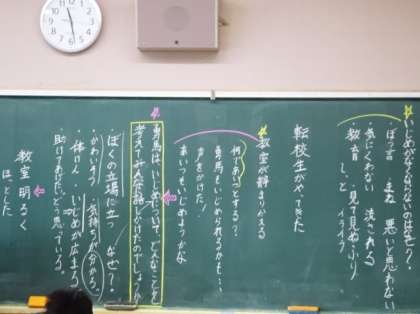 いじめがなくならないのはなぜ？
ぼっ言 まね 悪いと思わない
・気にくわない 流される
教育 しっと 見て見ぬふり
イライラ
転校生がやってきた
教室が静まりかえる
何であいつとする？
勇馬はいじめられるかも…
声をかけた！
あいつも、いじめようかな
勇馬はいじめについて、どんなことを
考えてみんなに話しかけたのでしょうか
ぼくの立場に立
なぜ？
・かわいそう 気持ちが分かる。
・体けん いじめが広まる
・助けてあげたい どう思っている。
教室 明るく
ほっとした